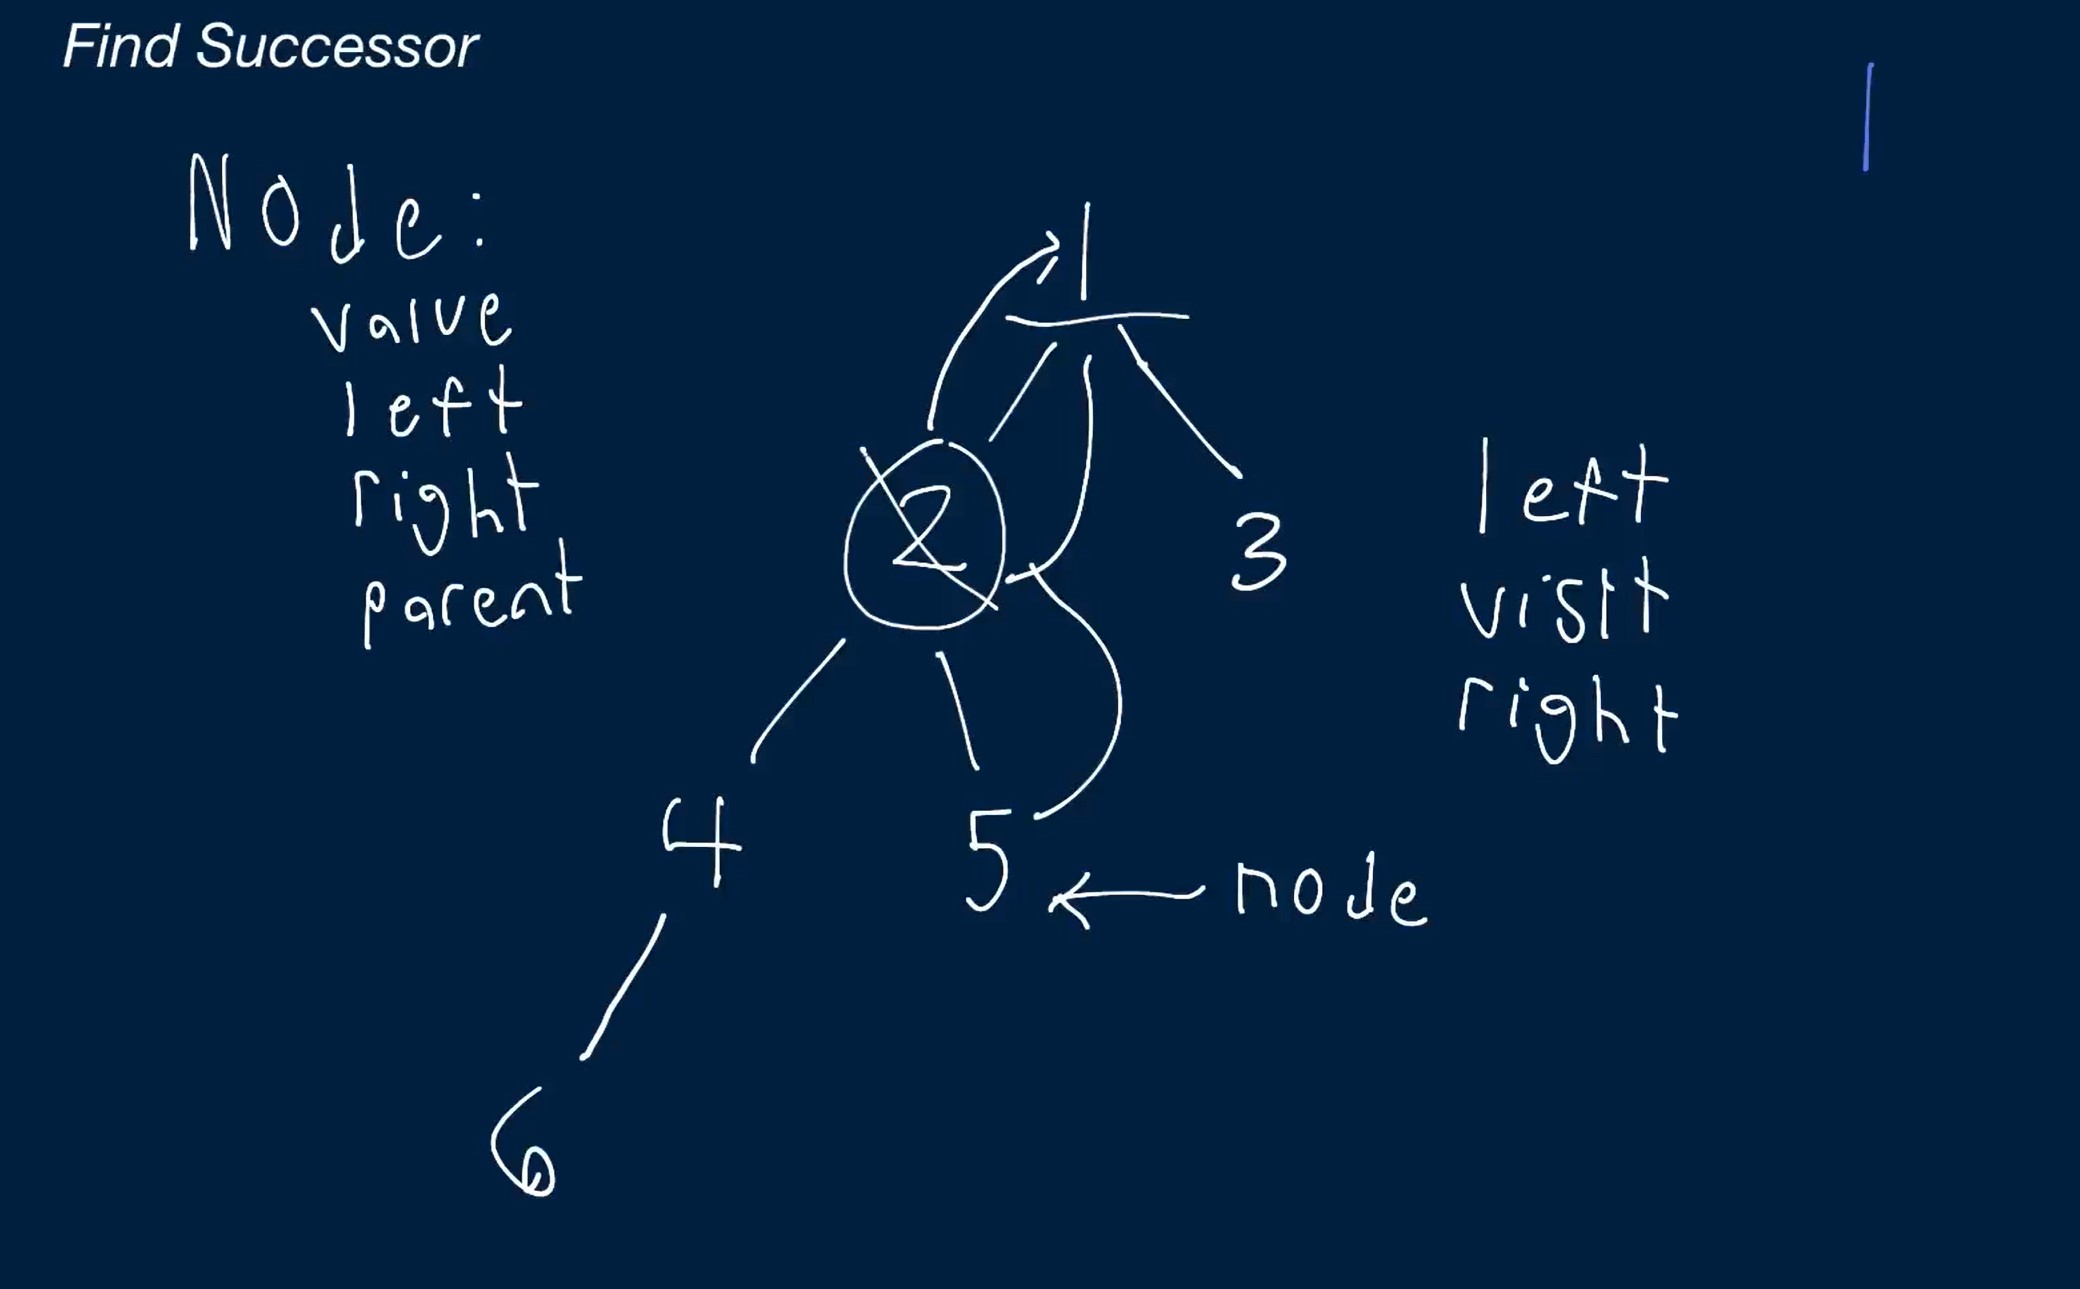 Find Successor
Node:
value
left
right
parent
1
2
3
4
5
6
node
left
visit
right